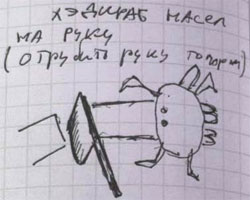 ХЭДКРАБ НАСЕЛ
НА РУКУ
(ОТРУБИТЬ РУКУ ТОПОРОМ)